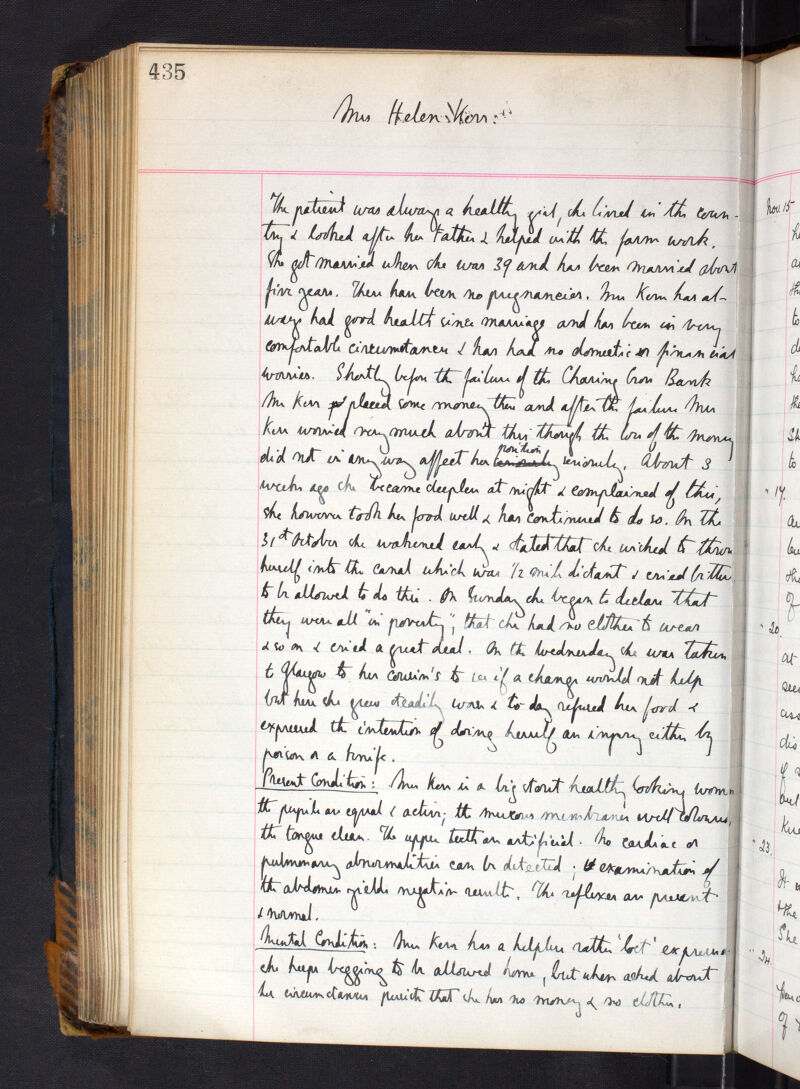 435
Mrs Helen Kerr:
The patient was always a healthy girl, she lived in the coun-
try & looked after her Father & helped with the farm work.
She got married when she was 39 and has been married about
five years. There have been no pregnancies. Mrs Kerr has al-
ways had good health since marriage and has been in very
comfortable circumstances & has had no domestic or financial
worries. Shortly before the failure of the Charing Cross Bank
Mr Kerr placed some money there and after the failure Mrs
Kerr worried very much about this though the loss of the money
did not in any way affect her position seriously. About 3
weeks ago she became sleepless at night & complained of this,
she however took her food well & has continued to do so. On the
31st October she wakened early & stated that she wished to throw
herself into the canal which was 1/2 mile distant & cried bitterly
to be allowed to do this. On Sunday she began to declare that
they were all "in poverty", that she had no clothes to wear
& so on & cried a great deal. On the Wednesday she was taken
to Glasgow to her cousin's to see if a change would not help
but here she grew steadily worse & to-day refused her food &
expressed the intention of doing herself an injury either by
poison or a knife.
Present Condition: Mrs Kerr is a big stout healthy looking woman
the pupils are equal & active; the mucous membranes well coloured,
the tongue clean. The upper teeth are artificial. No cardiac or
pulmonary abnormalities can be detected; examination of
the abdomen yields negative results. The reflexes are present
& normal.
Mental Condition: Mrs Kerr has a helpless rather 'lost' expression
she keeps begging to be allowed home, but when asked about
her circumstances persists that she has no money & no clothes.
Nov. 15
" 17.
" 20.
" 23.
" 24.